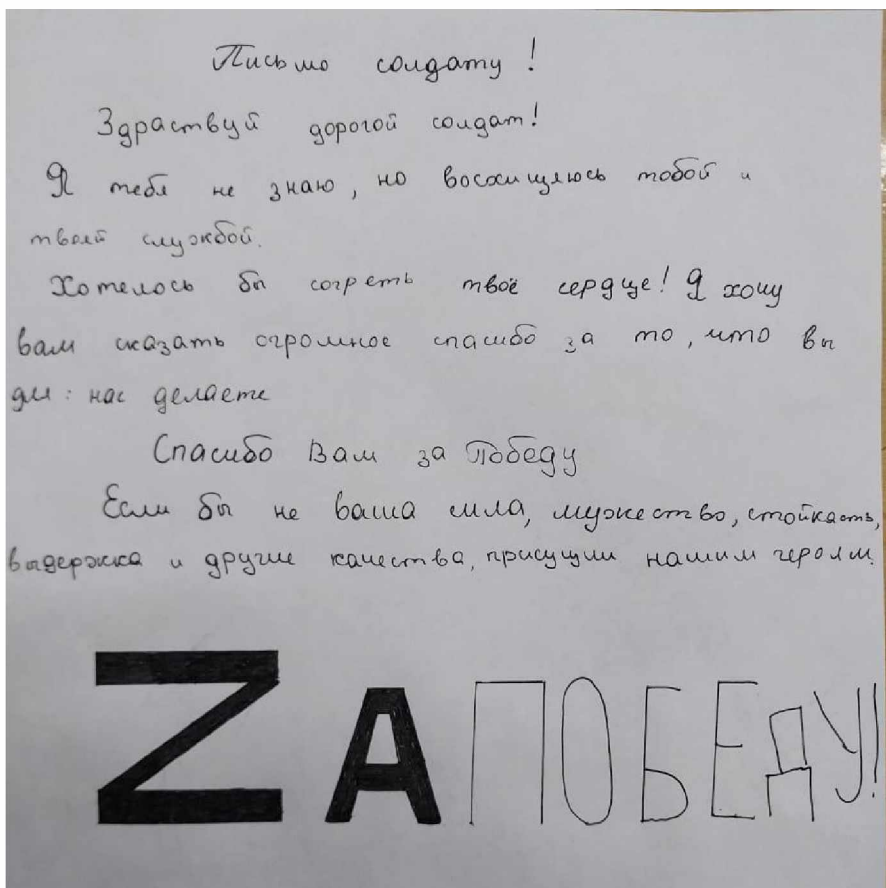 Письмо солдату!
Здраствуй дорогой солдат!
Я тебя не знаю, но восхищаюсь тобой и
твоей службой.
Хотелось бы согреть твоё сердце! Я хочу
вам сказать огромное спасибо за то, что вы
для нас делаете
Спасибо Вам за Победу
Если бы не ваша сила, мужество, стойкасть,
выдержка и другие качества, присущии нашим героям.
ZA ПОБЕДУ!